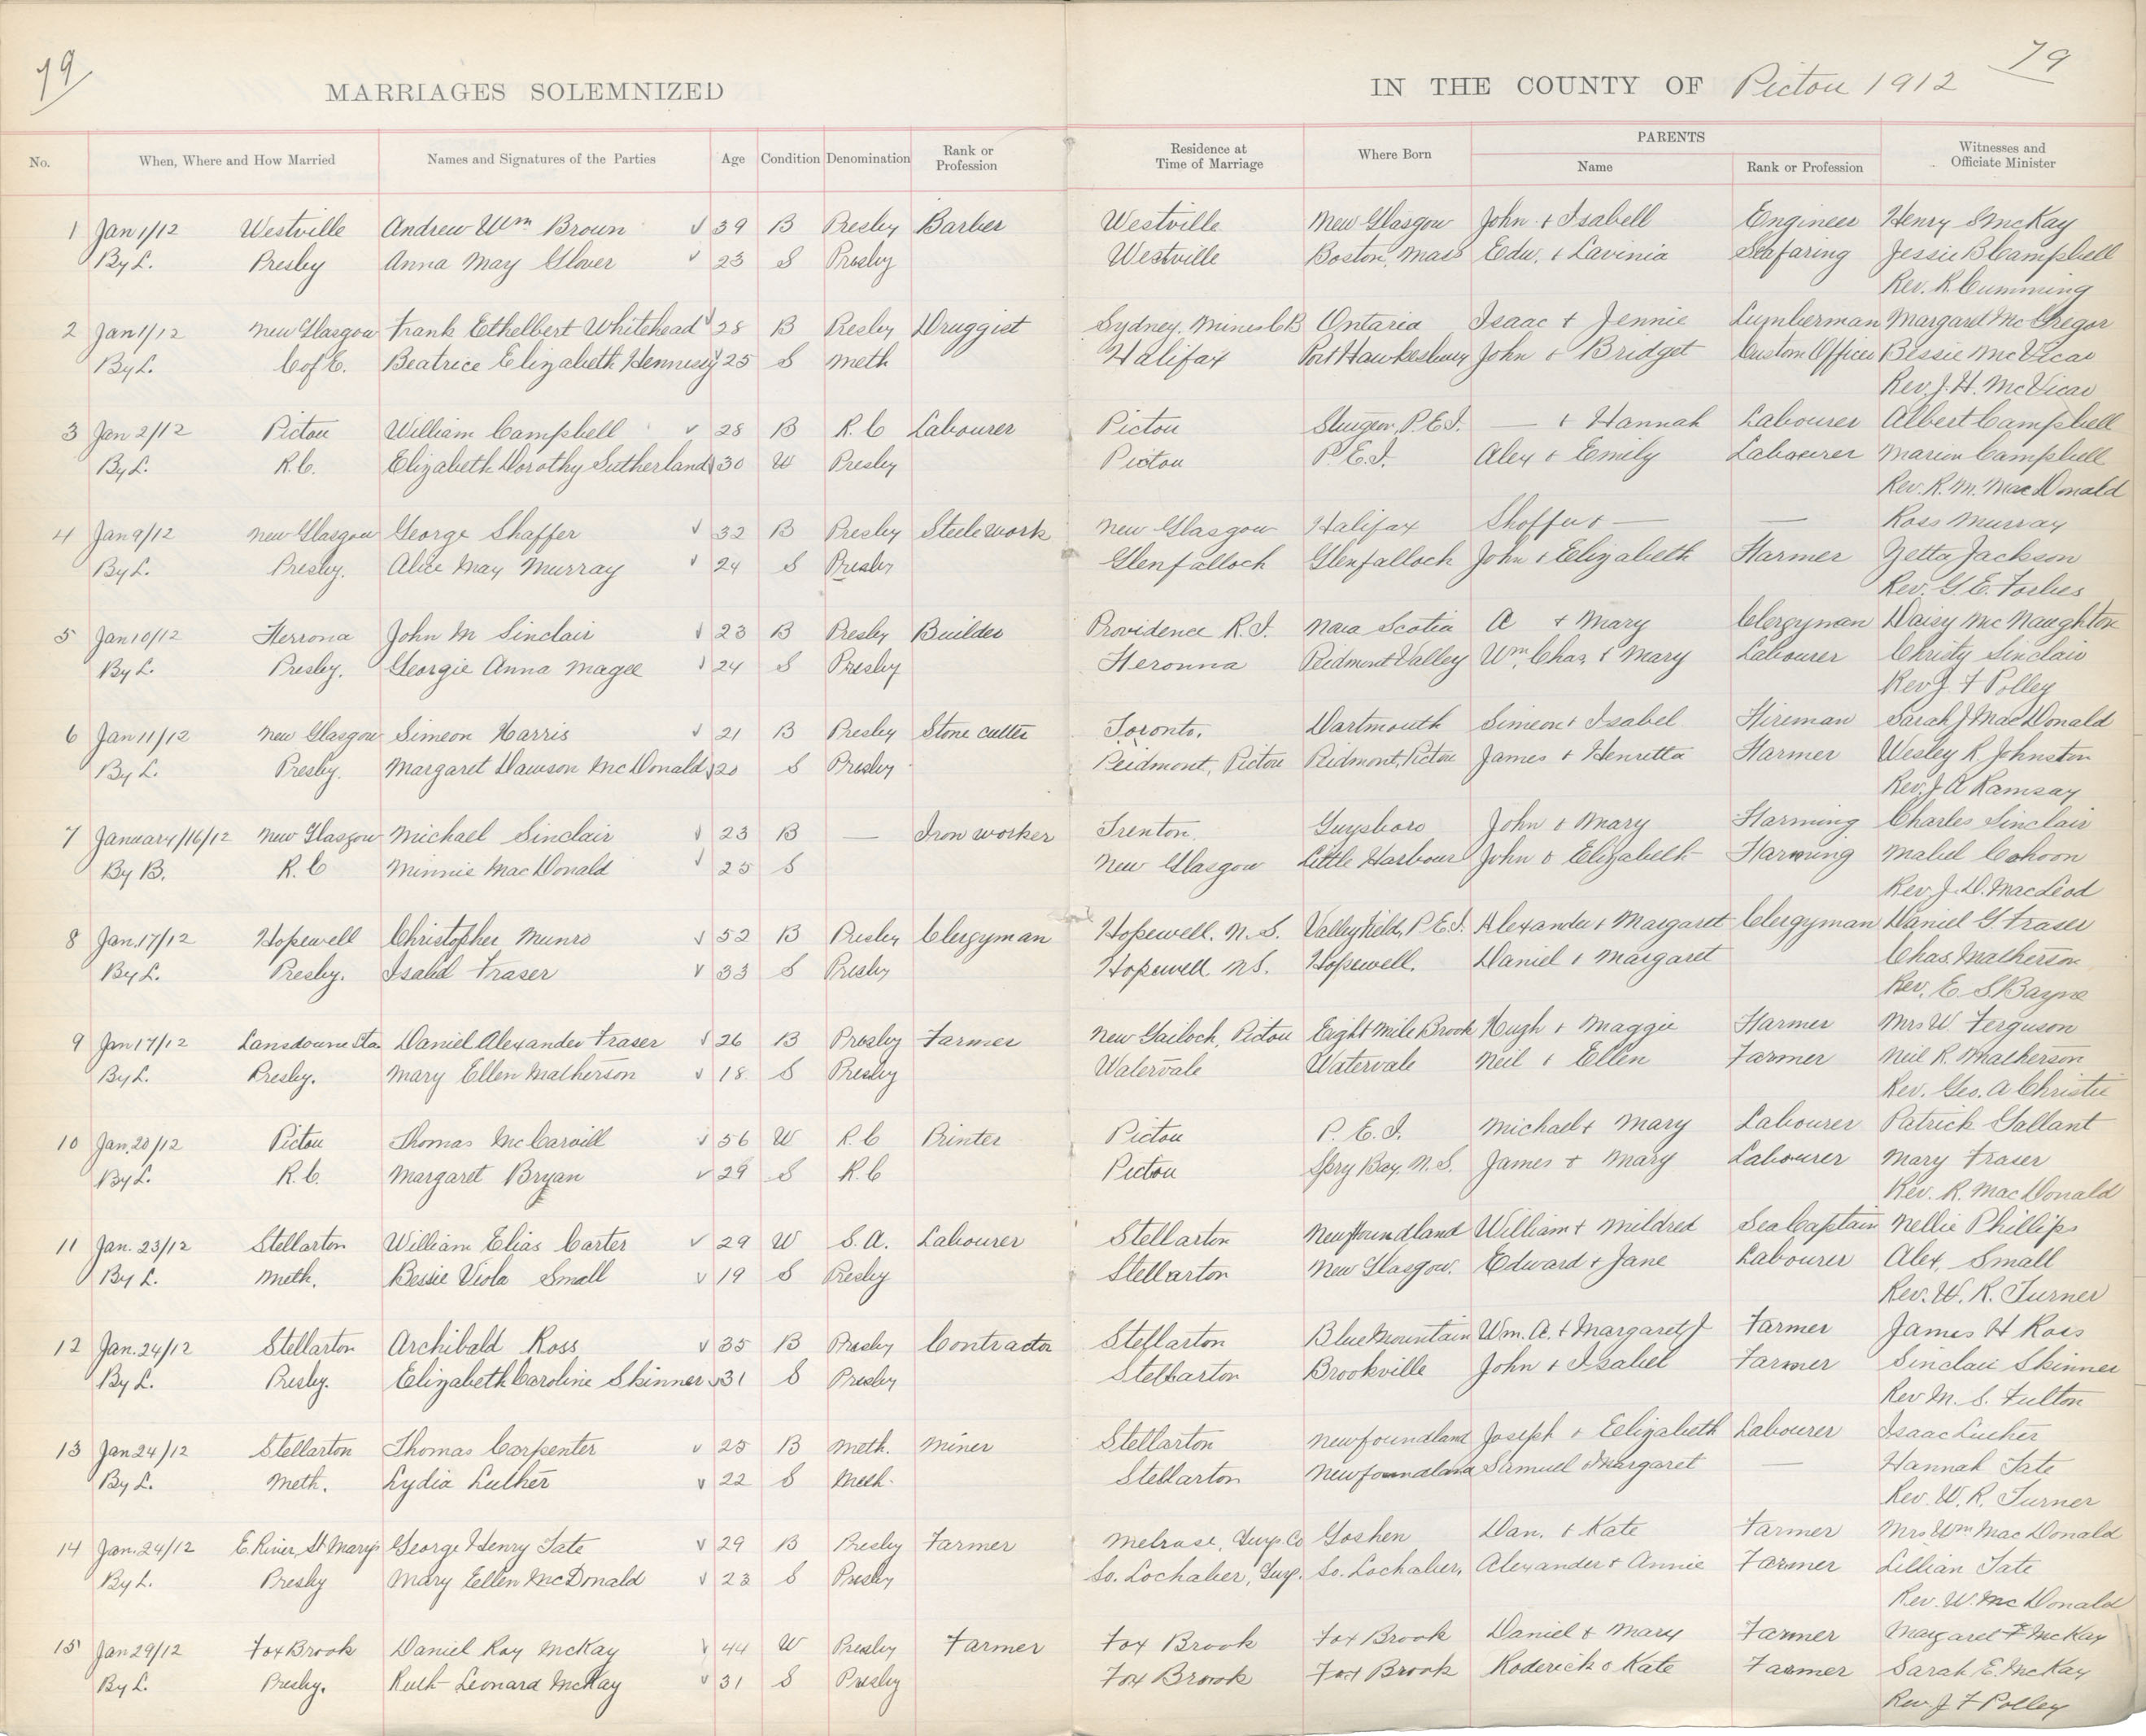 79 79
MARRIAGES SOLEMNIZED IN THE COUNTY OF Pictou 1912
No. When, Where and How Married Names and Signatures of the Parties Age Condition Denomination Rank or Profession Residence at Time of Marriage Where Born PARENTS Name Rank or Profession Witnesses and Officiate Minister
1 Jan 1/12 Westville Andrew Wm Brown √ 39 B Presby Barber Westville New Glasgow John + Isabell Engineer Henry S McKay
By L. Presby Anna May Glover √ 23 S Presby Westville Boston, Mass Edw. + Lavinia Seafaring Jessie B Campbell
Rev. R. Cumming
2 Jan 1/12 New Glasgow Frank Ethelbert Whitehead √ 28 B Presby Druggist Sydney Mines C B Ontario Isaac + Jennie Lumberman Margaret McGregor
By L. C of E. Beatrice Elizabeth Hennesey √ 25 S Meth Halifax Port Hawkesbury John & Bridget Custom Officer Bessie McVicar
Rev. J. H. McVicar
3 Jan 2/12 Pictou William Campbell √ 28 B R. C Labourer Pictou Sturgeon, P.E.I. — + Hannah Labourer Albert Campbell
By L. R.C. Elizabeth Dorothy Sutherland √ 30 W Presby Pictou P.E.I. Alex & Emily Labourer Marion Campbell
Rev. R. M. MacDonald
4 Jan 9/12 New Glasgow George Shaffer √ 32 B Presby Steele work New Glasgow Halifax Shoffer & — — Ross Murray
By L. Presby. Alice May Murray √ 24 S Presby Glenfalloch Glenfalloch John & Elizabeth Farmer Zetta Jackson
Rev. G. E. Forbes
5 Jan 10/12 Herrona John M Sinclair √ 23 B Presby Builder Providence R.I. Nova Scotia A + Mary Clergyman Daisy McNaughton
By L. Presby. Georgie Anna Magee √ 24 S Presby Heronna Piedmont Valley Wm. Chas + Mary Labourer Christy Sinclair
Rev J. F Polley
6 Jan 11/12 New Glasgow Simeon Harris √ 21 B Presby Stone cutter Toronto. Dartmouth Simeon + Isabel Fireman Sarah J MacDonald
By L. Presby. Margaret Dawson McDonald √ 20 S Presby Peidmont, Pictou Peidmont, Pictou James + Henretta Farmer Wesley R Johnston
Rev. J A Ramsay
7 January/16/12 New Glasgow Michael Sinclair √ 23 B — Iron worker Trenton Guysboro John & Mary Farming Charles Sinclair
By B. R. C Minnie MacDonald √ 25 S New Glasgow Little Harbour John & Elizabeth Farming Mabel Cohoon
Rev. J. D. MacLeod
8 Jan. 17/12 Hopewell Christopher Munro √ 52 B Presby Clergyman Hopewell. N. S. Valleyfield, P.E.I. Alexander + Margaret Clergyman Daniel G. Fraser
By L. Presby. Isabel Fraser √ 33 S Presby Hopewell N.S. Hopewell. Daniel + Margaret Chas. Matherson
Rev. E S Bayne
9 Jan 17/12 Lansdowne Sta. Daniel Alexander Fraser √ 26 B Presby Farmer New Gairloch, Pictou Eight Mile Brook Hugh + Maggie Farmer Mrs W. Ferguson
By L. Presby. Mary Ellen Matherson √ 18 S Presby Watervale Watervale Neil + Ellen Farmer Neil R. Matherson
Rev. Geo. A Christie
10 Jan. 20/12 Pictou Thomas McCarvill √ 56 W R. C Printer Pictou P. E. I. Michael + Mary Labourer Patrick Gallant
By L. R. C. Margaret Bryan √ 29 S R. C Pictou Spry Bay. N. S. James + Mary Labourer Mary Fraser
Rev. R. MacDonald
11 Jan. 23/12 Stellarton William Elias Carter √ 29 W S. A. Labourer Stellarton Newfoundland William + Mildred Sea Captain Nellie Phillips
By L. Meth. Bessie Viola Small √ 19 S Presby Stellarton New Glasgow. Edward + Jane Labourer Alex. Small
Rev. W. R. Turner
12 Jan. 24/12 Stellarton Archibald Ross √ 35 B Presby Contractor Stellarton Blue Mountain Wm. A. + Margaret J Farmer James H Ross
By L. Presby. Elizabeth Caroline Skinner √ 31 S Presby Stellarton Brookville John + Isabel Farmer Sinclair Skinner
Rev M. S. Fulton
13 Jan 24/12 Stellarton Thomas Carpenter √ 25 B Meth. Miner Stellarton Newfoundland Joseph + Eelizabeth Labourer Isaac Luther
By L. Meth. Lydia Luther √ 22 S Meth. Stellarton Newfoundland Samuel & Margaret — Hannah Tate
Rev. W. R. Turner
14 Jan. 24/12 E. River, St Marys George Henry Tate √ 29 B Presby Farmer Melrose, Guys. Co Goshen Dan. + Kate Farmer Mrs Wm MacDonald
By L. Presby Mary Ellen McDonald √ 23 S Presby So. Lochaber, Guys. So. Lochaber, Alexander + Annie Farmer Lillian Tate
Rev. W. McDonald
15 Jan 29/12 Fox Brook Daniel Roy McKay √ 44 W Presby Farmer Fox Brook Fox Brook Daniel + Mary Farmer Margaret F McKay
By L. Presby. Ruth Leonard McKay √ 31 S Presby Fox Brook Fox Brook Roderick & Kate Farmer Sarah E. McKay
Rev. J. F Polley